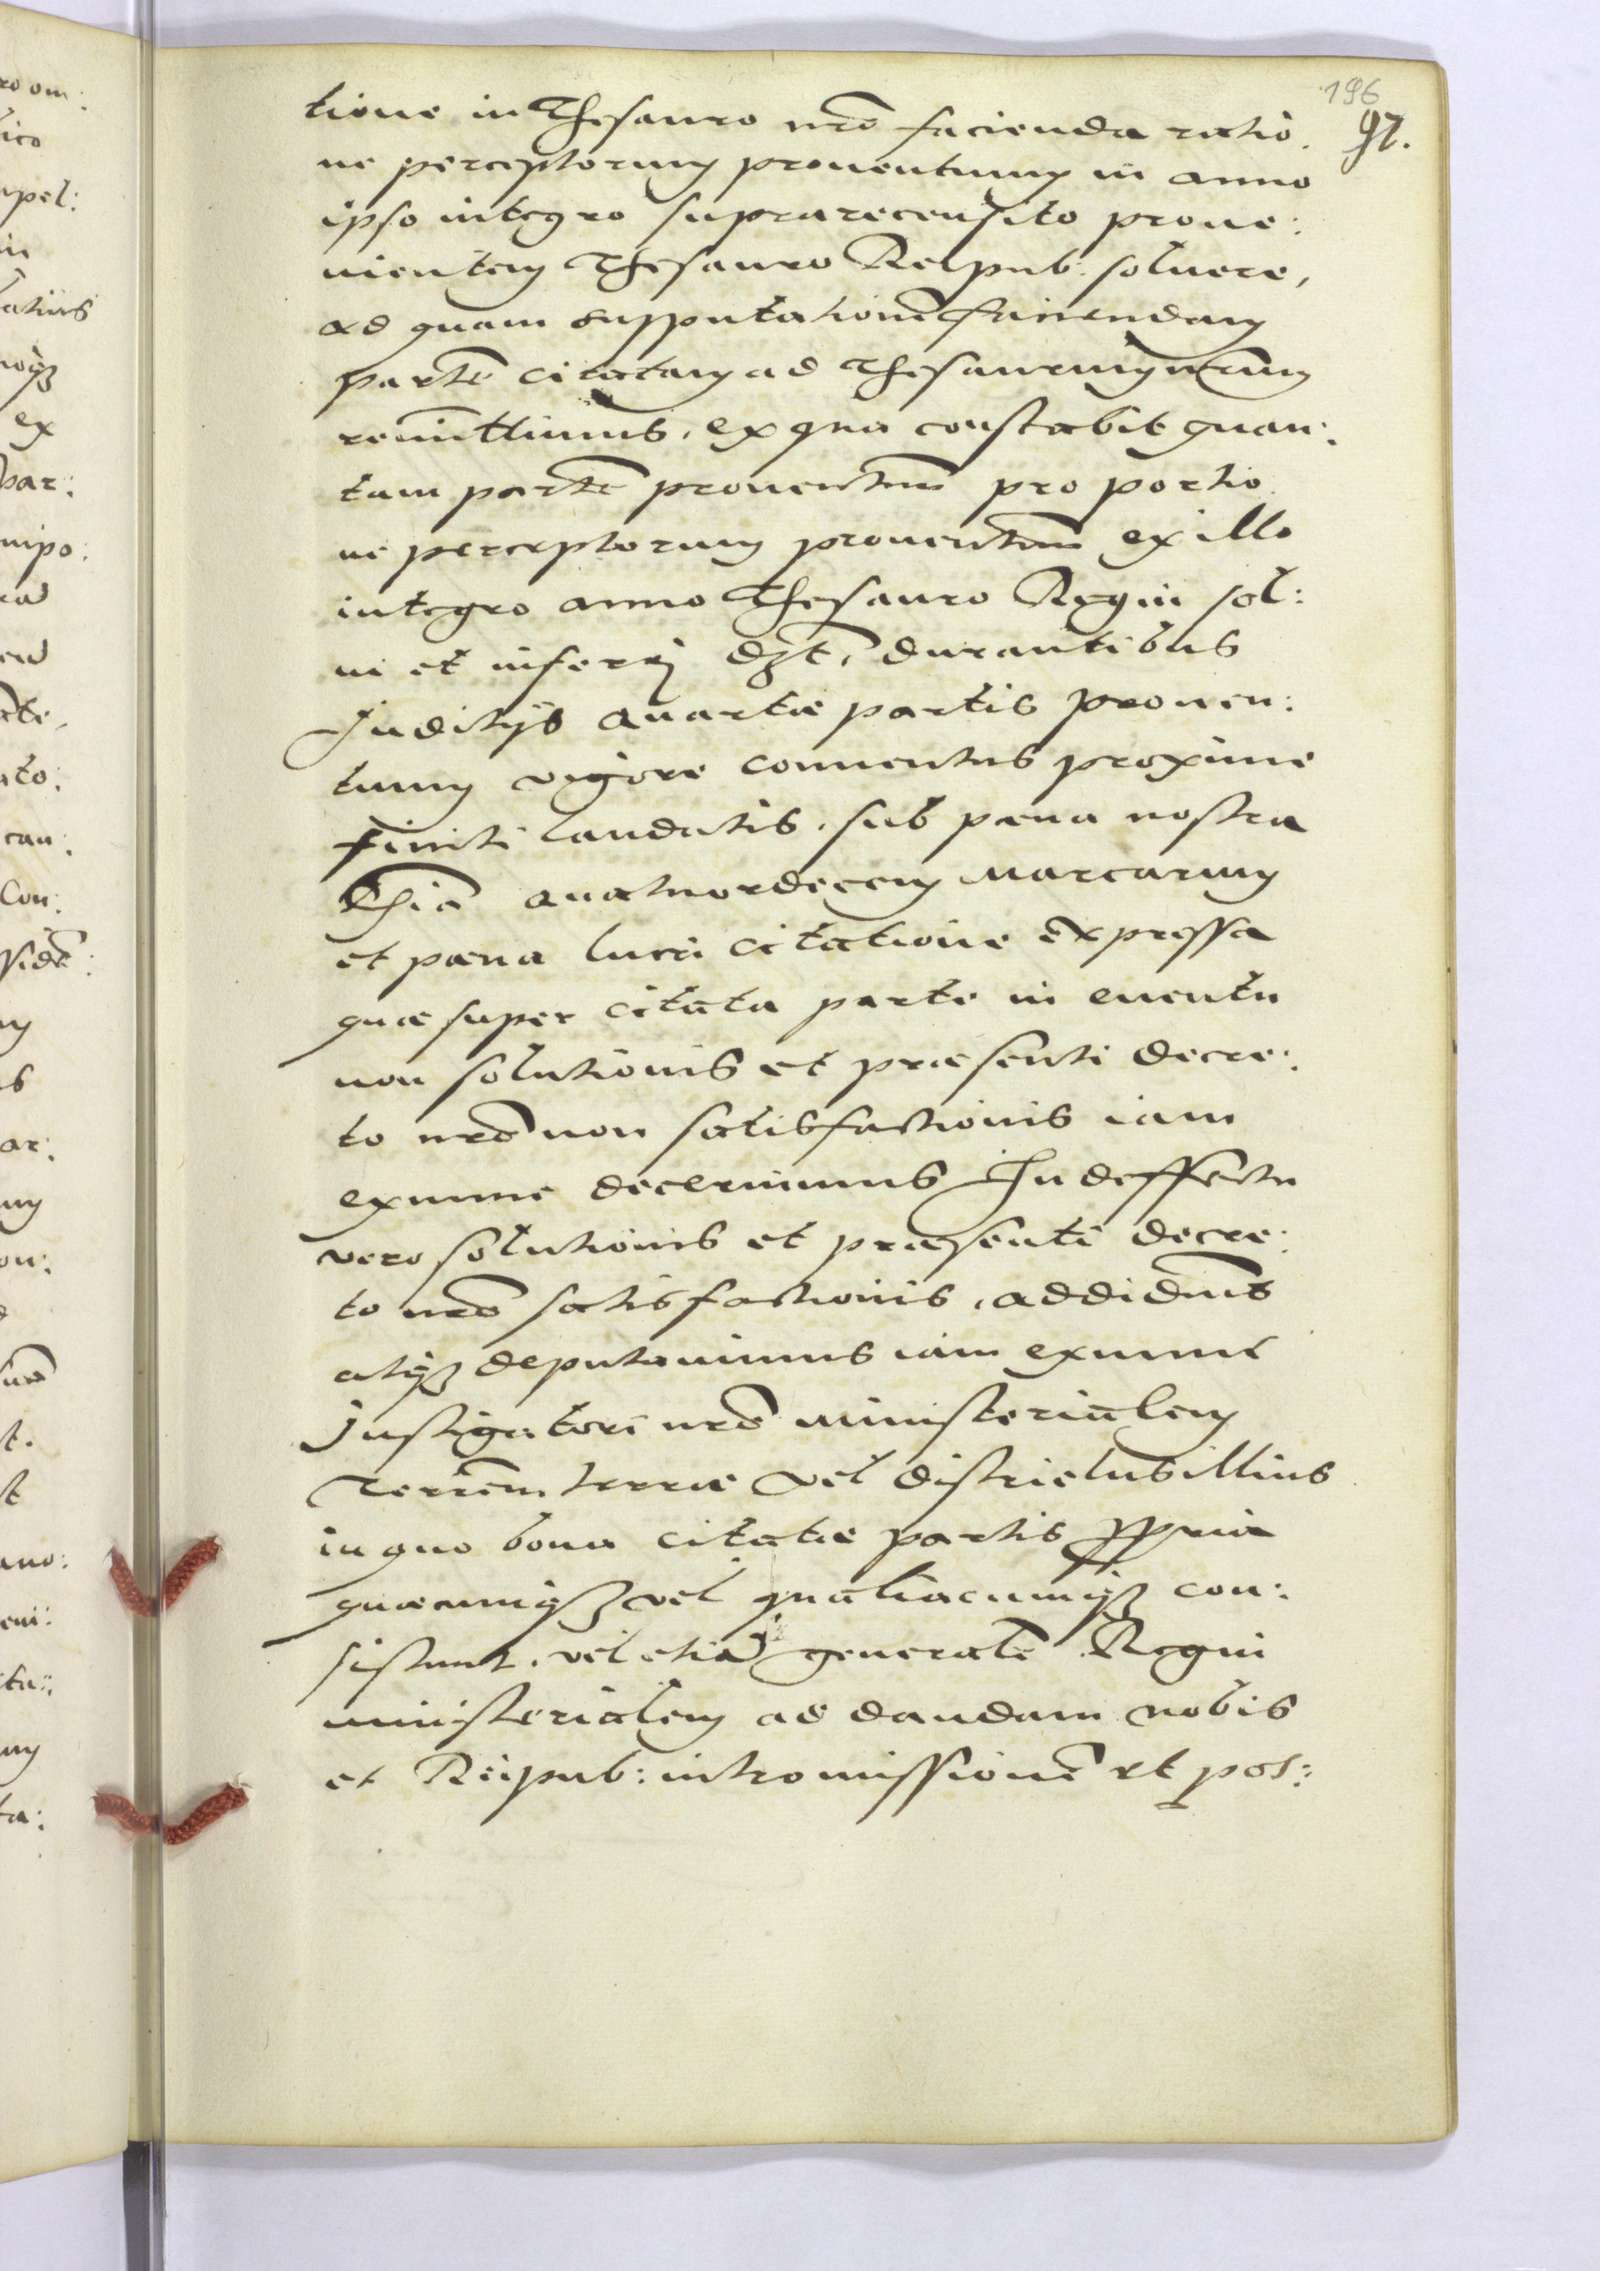 196
97.
tione in Thesauro nr̃o facienda ratio
ne perceptorum prouentuum in anno
ipso integro suprarecensito proue:
nientem Thesauro Reipub: soluere,
ad quam supputationẽ faciendam
partẽ citatam ad Thesaurum nr̃um
remittimus, ex qua constabit quan:
tam partẽ prouentuũ pro portio
ne perceptorum prouentuũ ex illo
integro anno Thesauro Regni sol:
ui et inferrj dẽt, durantibus
Juditijs quartæ partis prouen:
tuum vigore conuentus proxime
finiti laudatis, sub pæna nostra
Rhiã quatuordecem marcarum
et pæna lucri citatione expressa
quæ super citata parte in euentu
non solutionis et præsenti decre:
to nr̃o non satisfactionis iam
exnunc decernimus In deffectu
vero solutionis et præsenti decre:
to nr̃o satisfactionis, addidim̃s
atqȝ deputauimus iam exnunc
Justigatori nr̃o ministerialem
Terrem̃ terræ vel districtus illius
in quo bona citatæ partis ppria
quæcunqȝ vel qualiacunqȝ con:
sistunt, vel etiã generalẽ Regni
ministerialem ad dandam nobis
et Reipub: intromissionẽ et pos: